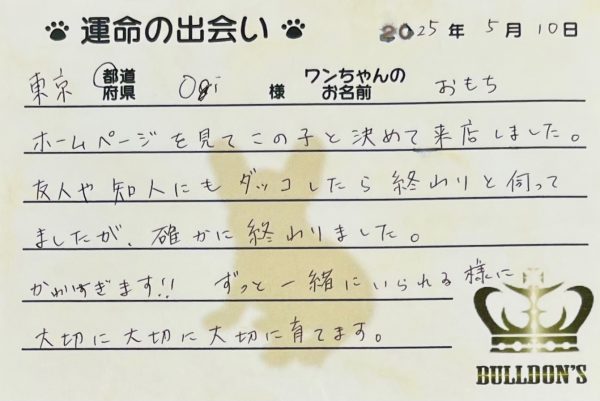 運命の出会い 2025年 5月 10日
東京 都道府県 Ogi 様 ワンちゃんのお名前 おもち
ホームページを見てこの子と決めて来店しました。
友人や知人にもダッコしたら終わりと伺って
ましたが、確かに終わりました。
かわいすぎます!! ずっと一緒にいられる様に
大切に大切に大切に育てます。
BULLDON'S